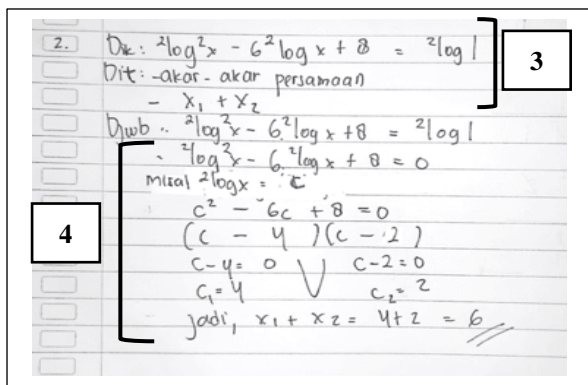 2. Dik: ²log²x - 6²log x + 8 = ²log 1
3
Dit: -akar-akar persamaan
- x₁ + x₂
Djwb .. ²log²x - 6.²log x + 8 = ²log 1
. ²log²x - 6.²log x + 8 = 0
4
misal ²log x = c
c² - 6c + 8 = 0
(c - 4)(c - 2)
c-4 = 0 V c-2 = 0
c₁ = 4 c₂ = 2
jadi, x₁ + x₂ = 4+2 = 6